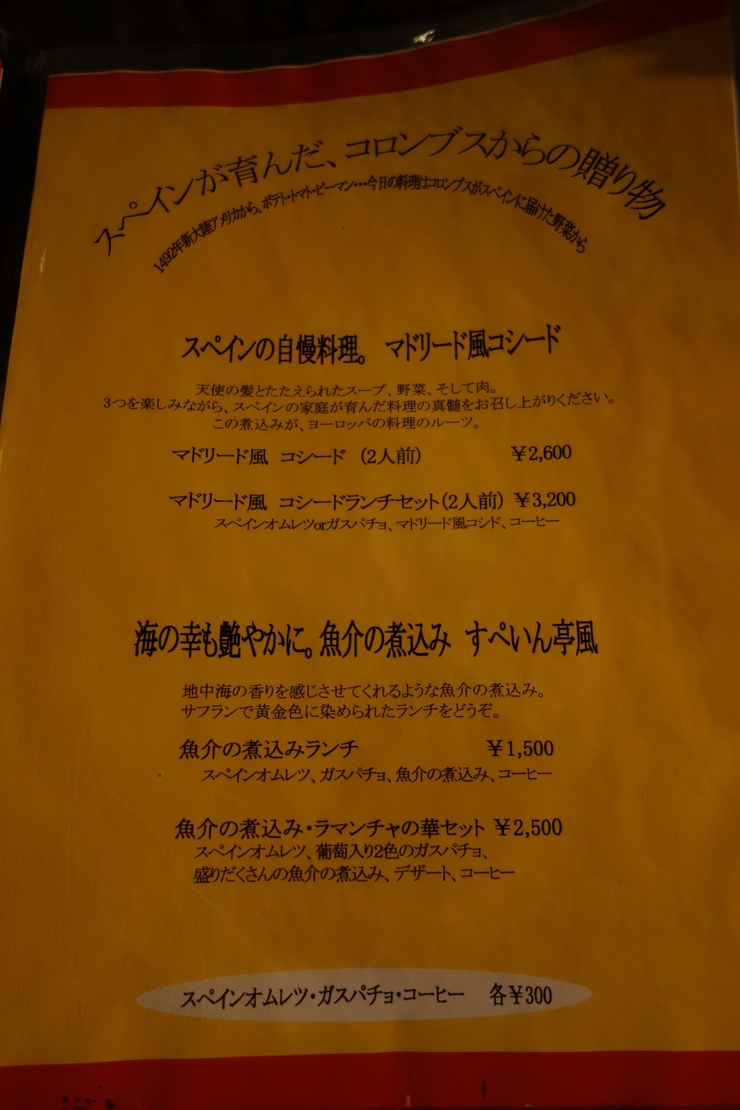 スペインが育んだ、コロンブスからの贈り物
1492年新大陸アメリカから、ポテト・トマト・ピーマン…今日の料理はコロンブスがスペインに届けた野菜から
スペインの自慢料理。 マドリード風コシード
天使の髪とたたえられたスープ、野菜、そして肉。
3つを楽しみながら、スペインの家庭が育んだ料理の真髄をお召し上がりください。
この煮込みが、ヨーロッパの料理のルーツ。
マドリード風 コシード (2人前) ￥2,600
マドリード風 コシードランチセット(2人前) ￥3,200
スペインオムレツorガスパチョ、マドリード風コシド、コーヒー
海の幸も艶やかに。魚介の煮込み すぺいん亭風
地中海の香りを感じさせてくれるような魚介の煮込み。
サフランで黄金色に染められたランチをどうぞ。
魚介の煮込みランチ ￥1,500
スペインオムレツ、ガスパチョ、魚介の煮込み、コーヒー
魚介の煮込み・ラマンチャの華セット ￥2,500
スペインオムレツ、葡萄入り2色のガスパチョ、
盛りだくさんの魚介の煮込み、デザート、コーヒー
スペインオムレツ・ガスパチョ・コーヒー 各￥300